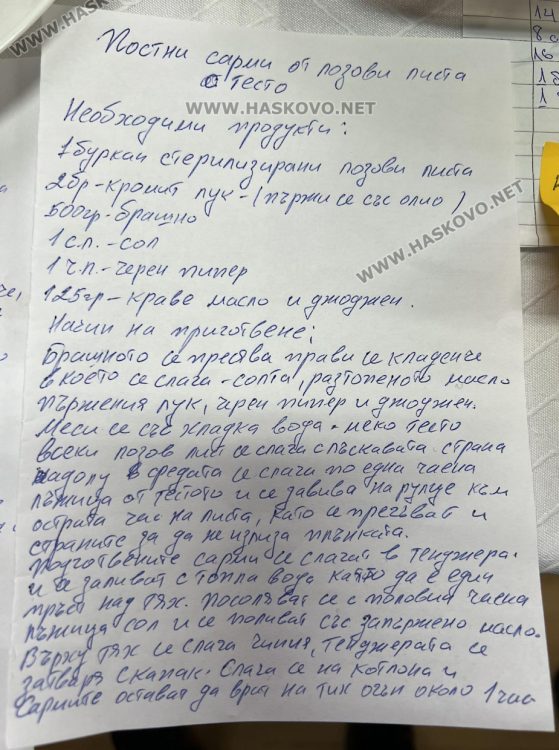 14
8
16
Постни сарми от лозови листа
с тесто
WWW.HASKOVO.NET
WWW.HASKOVO.NET
Необходими продукти:
1 буркан стерилизирани лозови листа
2бр-кромит лук-(пържи се със олио)
500гр-брашно
1 с.л.-сол
1 ч.л.-черен пипер
WWW.HASKOVO.NET
125гр-краве масло и джоджен.
Начин на приготвене;
Брашното се пресява прави се кладенче
в което се слага-солта, разтопеното масло
пържения лук, черен пипер и джоджен.
Меси се със хладка вода-меко тесто
всеки лозов лист се слага с лъскавата страна
надолу в средата се слага по една чаена
лъжица от тестото и се завива на рулце към
острата час на листа, като се прегъват и
страните за да не излиза плънката.
подготвените сарми се слагат в тенджера.
и се заливат с топла вода която да е един
пръст над тях. посоляват се с половин чаена
лъжица сол и се поливат със запържено масло.
Върху тях се слага чиния, тенджерата се
затваря с капак. Слага се на котлона и
Сармите остават да врат на тих огън около 1 час
WWW.HASKOVO.NET